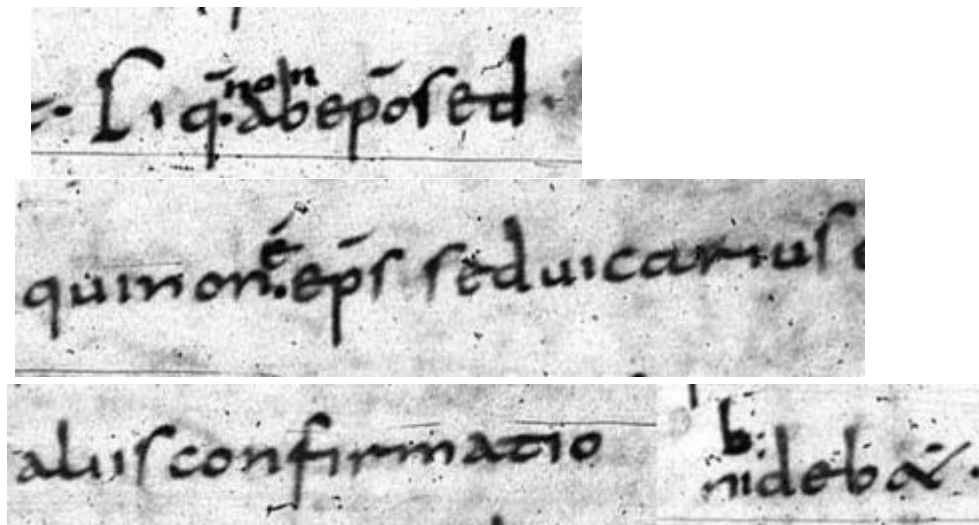 Si q̄. non ab epō sed
qui non. ē ep̄s sed uicarius
aluis confirmatio